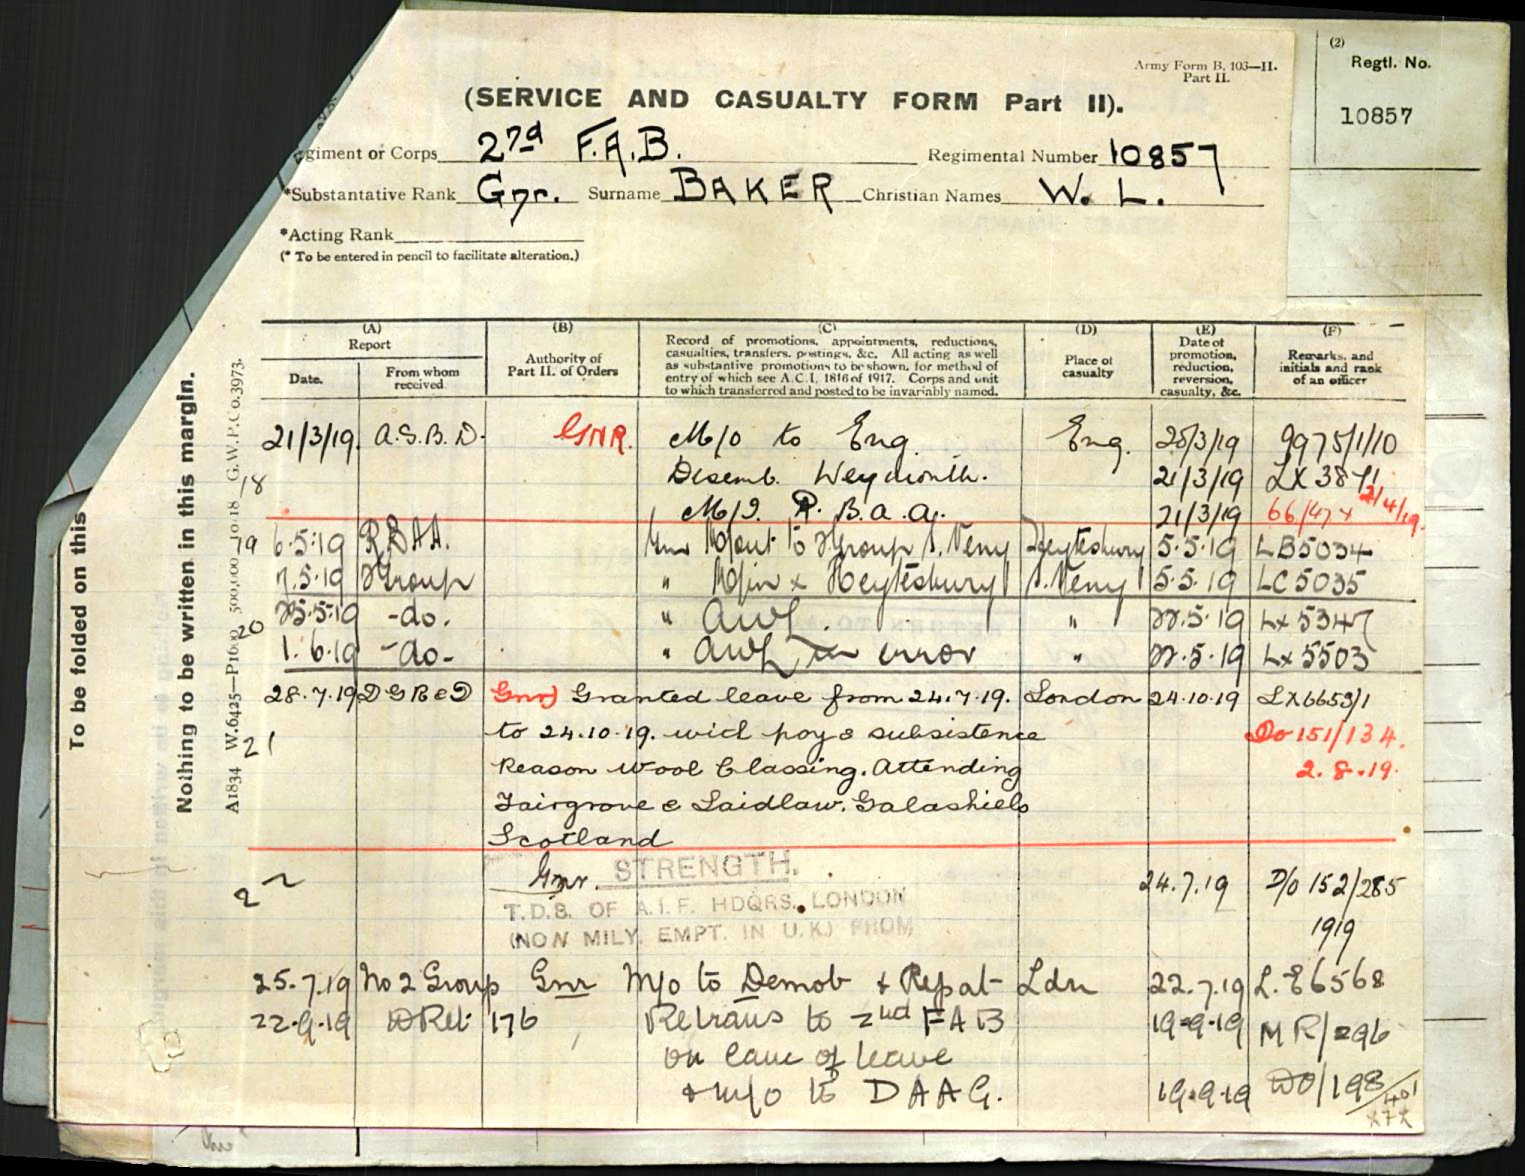 (2)
Regtl. No.
10857
Army Form B. 103—II.
Part II.
(SERVICE AND CASUALTY FORM Part II).
giment or Corps 2nd F.A.B. Regimental Number 10857
*Substantative Rank Gnr. Surname BAKER Christian Names W. L.
*Acting Rank
(* To be entered in pencil to facilitate alteration.)
To be folded on this
Nothing to be written in this margin.
A1834 W.6425—P1600 500,000—10-18 G.W.P.Co.3973.
18
19
20
21
22
(A)
Report
Date.
From whom
received
(B)
Authority of
Part II. of Orders
(C)
Record of promotions, appointments, reductions,
casualties, transfers, postings, &c. All acting as well
as substantive promotions to be shown, for method of
entry of which see A.C.I. 1816 of 1917. Corps and unit
to which transferred and posted to be invariably named.
(D)
Place of
casualty
(E)
Date of
promotion,
reduction,
reversion,
casualty, &c.
(F)
Remarks, and
initials and rank
of an officer
21/3/19. A.S.B.D. GNR. M/O to Eng. Eng. 20/3/19 9975/1/10
Disemb. Weymouth. 21/3/19 LX3871
M/I. R.B.A.A. 21/3/19 66/47+ 2/4/19.
6.5.19 RBAA. Gnr M/out to Group S. Veny Heytesbury 5.5.19 LB5034
7.5.19 Group " M/in x Heytesbury S. Veny 5.5.19 LC5035
25.5.19 -do. " AWL. " 22.5.19 Lx5347
1.6.19 -do- " AWL in error " 22.5.19 Lx5503
28.7.19 DGR&D Gnr) Granted leave from 24.7.19. London 24.10.19 LX6653/1
to 24.10.19. with pay & subsistence Do 151/134.
Reason Wool Classing. Attending 2.8.19.
Fairgrove & Laidlaw. Galashiels
Scotland
Gnr. STRENGTH. 24.7.19 D/O 152/285
T.D.B. OF A.I.F. HDQRS. LONDON
(NON MILY. EMPT. IN U.K.) FROM 1919
25.7.19 No 2 Group Gnr M/o to Demob & Repat Ldn 22.7.19 L.E6568
22.9.19 DRet 176 Retrans to 2nd FAB 19.9.19 MR/296
on canc of leave
& m/o to DAAG. 19.9.19 DO/198